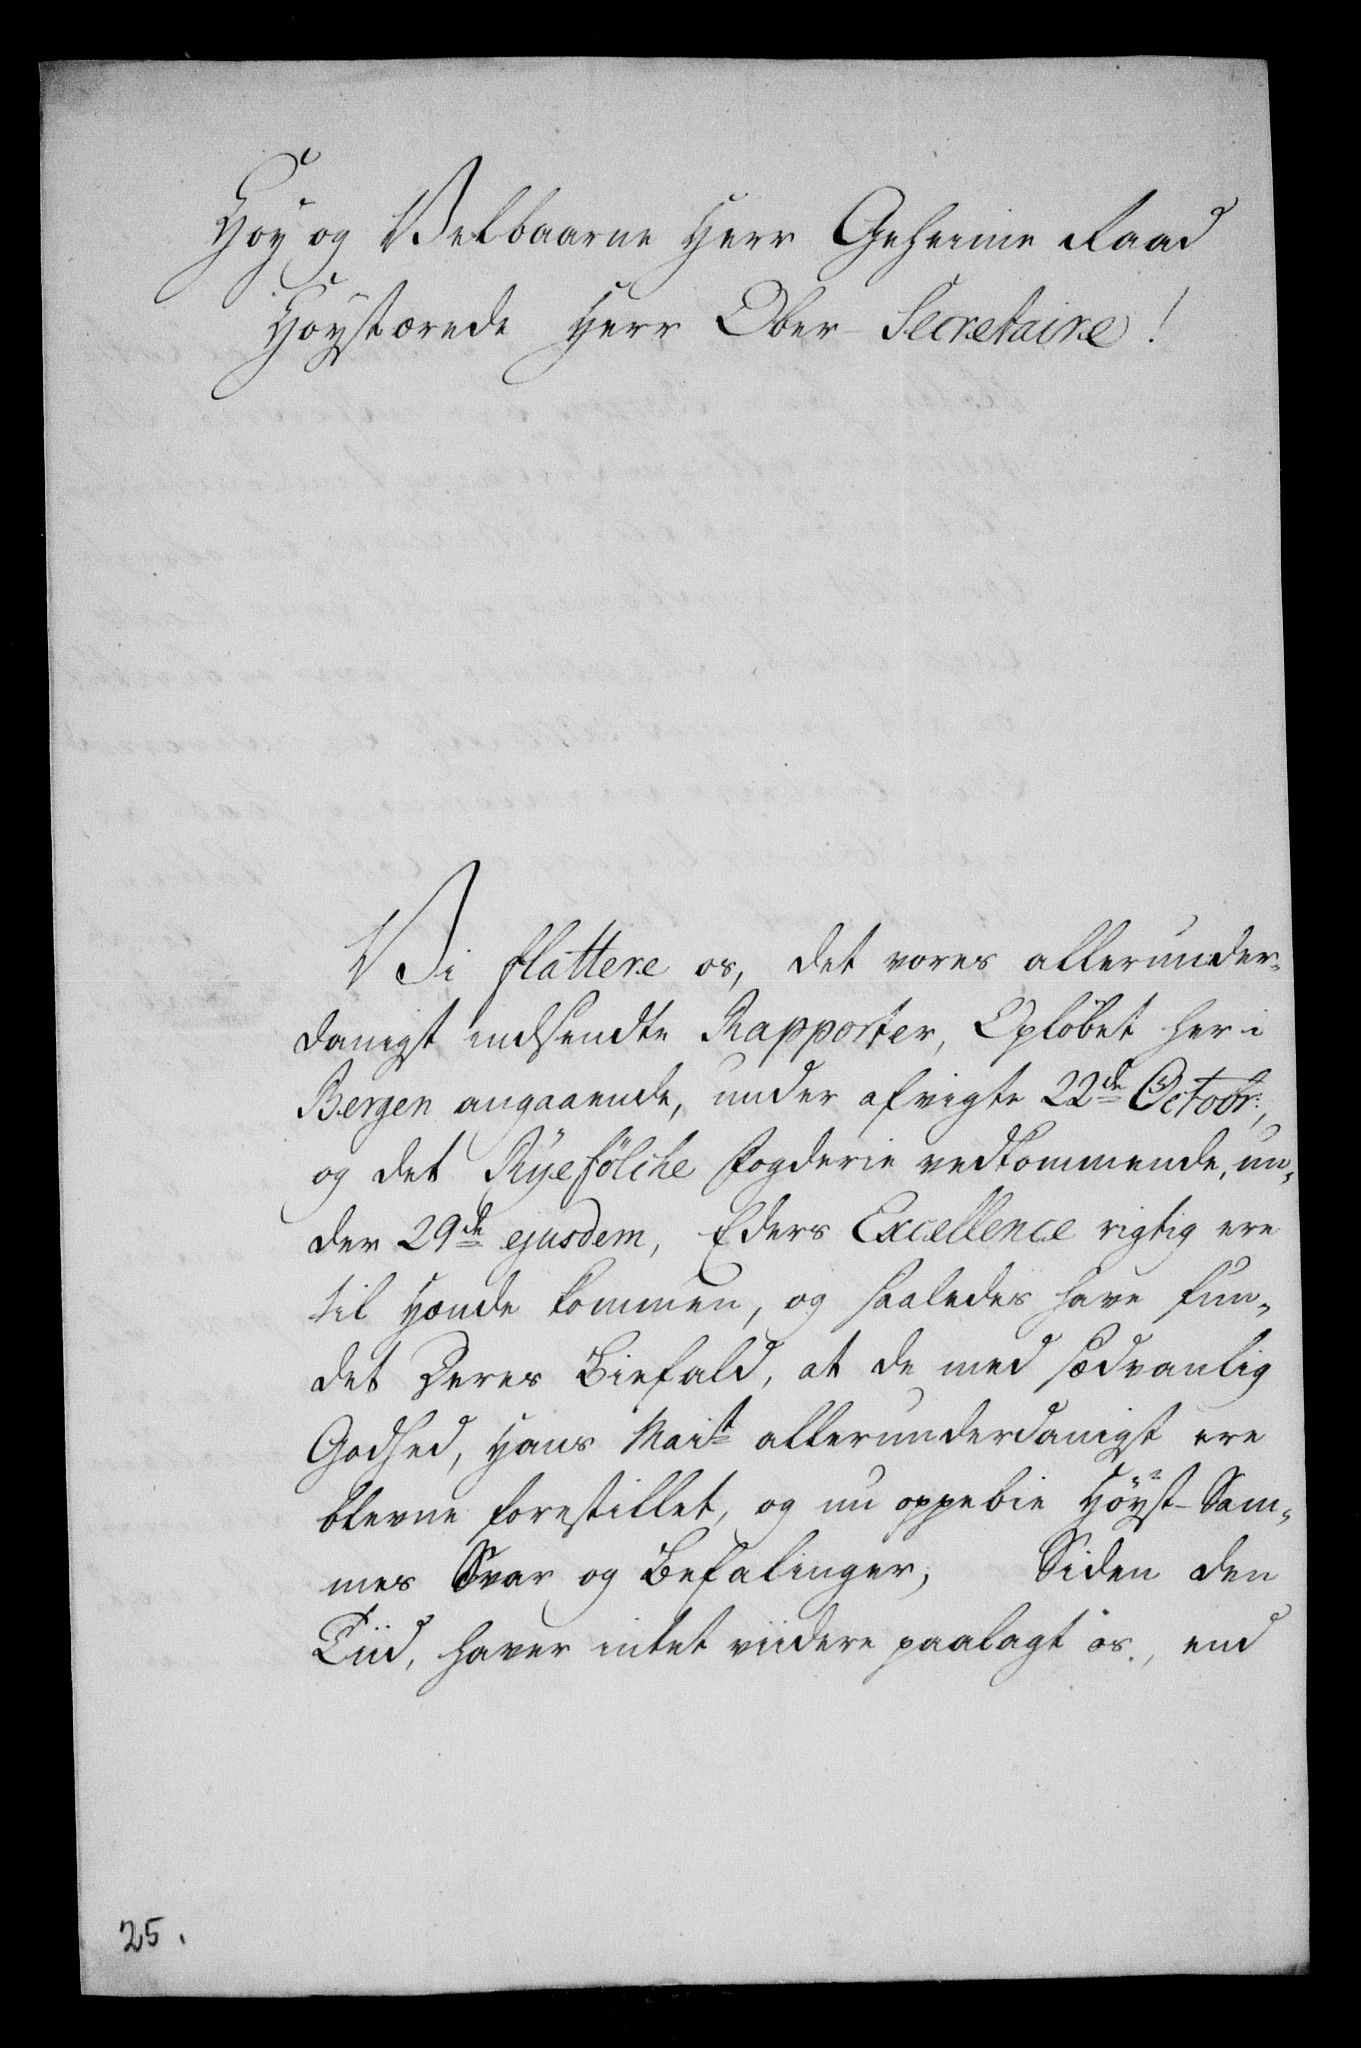 Høy og Velbaarne Herr Geheime Raad
Høystærede Herr Ober-Secretaire!
Vi flattere os, det vores allerunder-
danigst indsendte Rapporter, Opløbet her i
Bergen angaaende, under afvigte 22de Octobr:,
og det Ryefölche Fogderie vedkommende, un-
der 29de ejusdem, Eders Excellence rigtig ere
til Hænde kommen, og saaledes have fun-
det Deres Biefald, at de med sædvanlig
Godhed, Hans Mait allerunderdanigst ere
blevne forestillet, og nu oppebie Høyst-Sam-
mes Svar og Befalinger; Siden den
Tiid, haver intet viidere paalagt os, end
25.